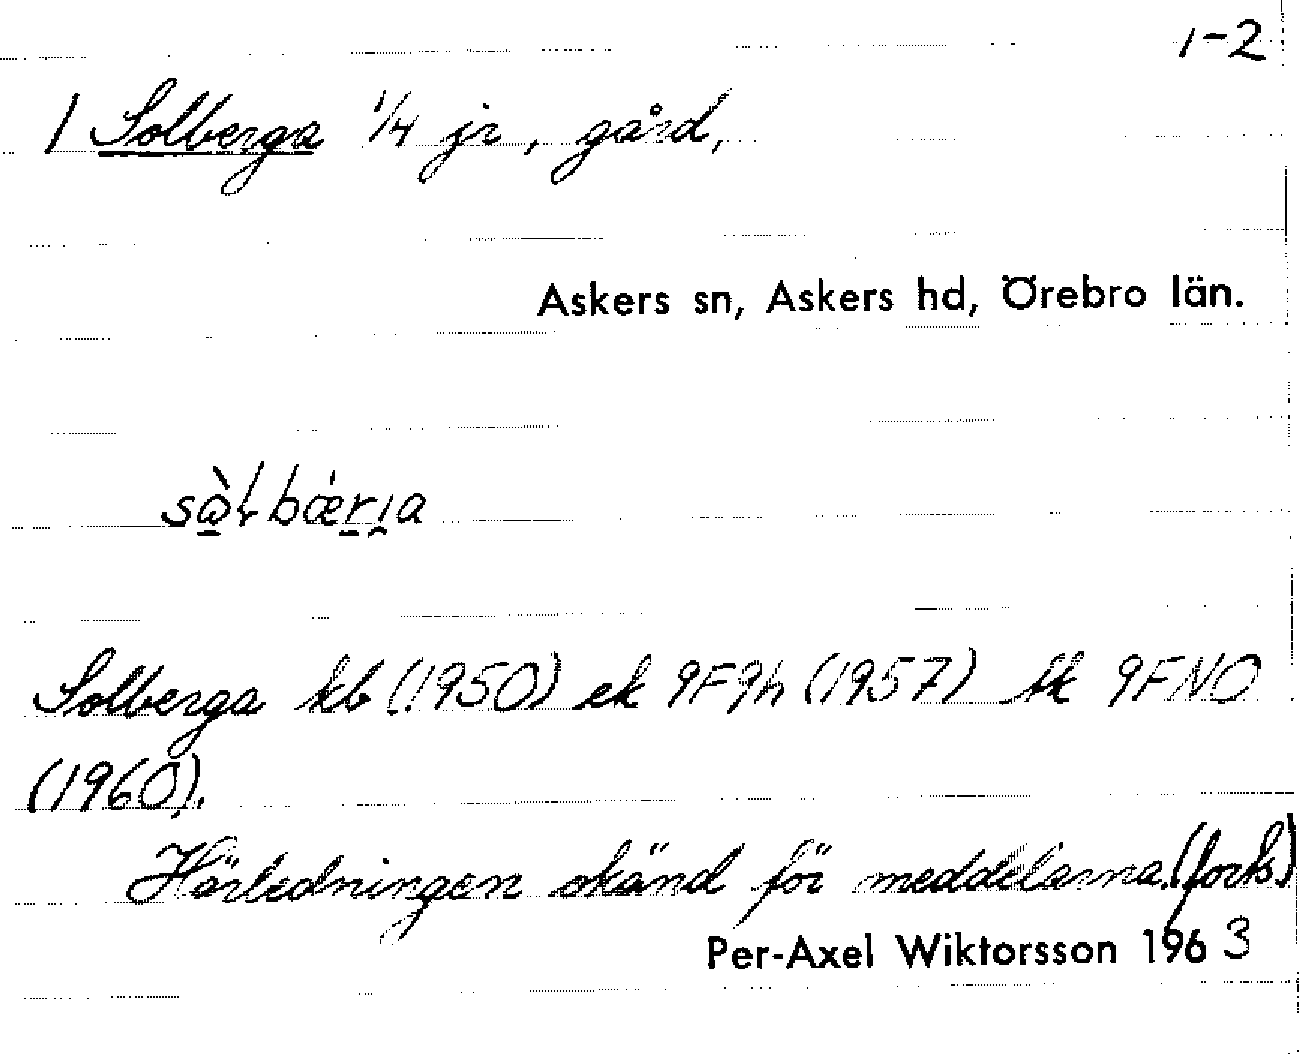 1-2
/ Solberga 1/4 jr, gård,
Askers sn, Askers hd, Örebro län.
Solberga kb (1950) ek 9F9h (1957) tk 9FNO
(1960).
Härledningen okänd för meddelarna. (forts)
Per-Axel Wiktorsson 1963